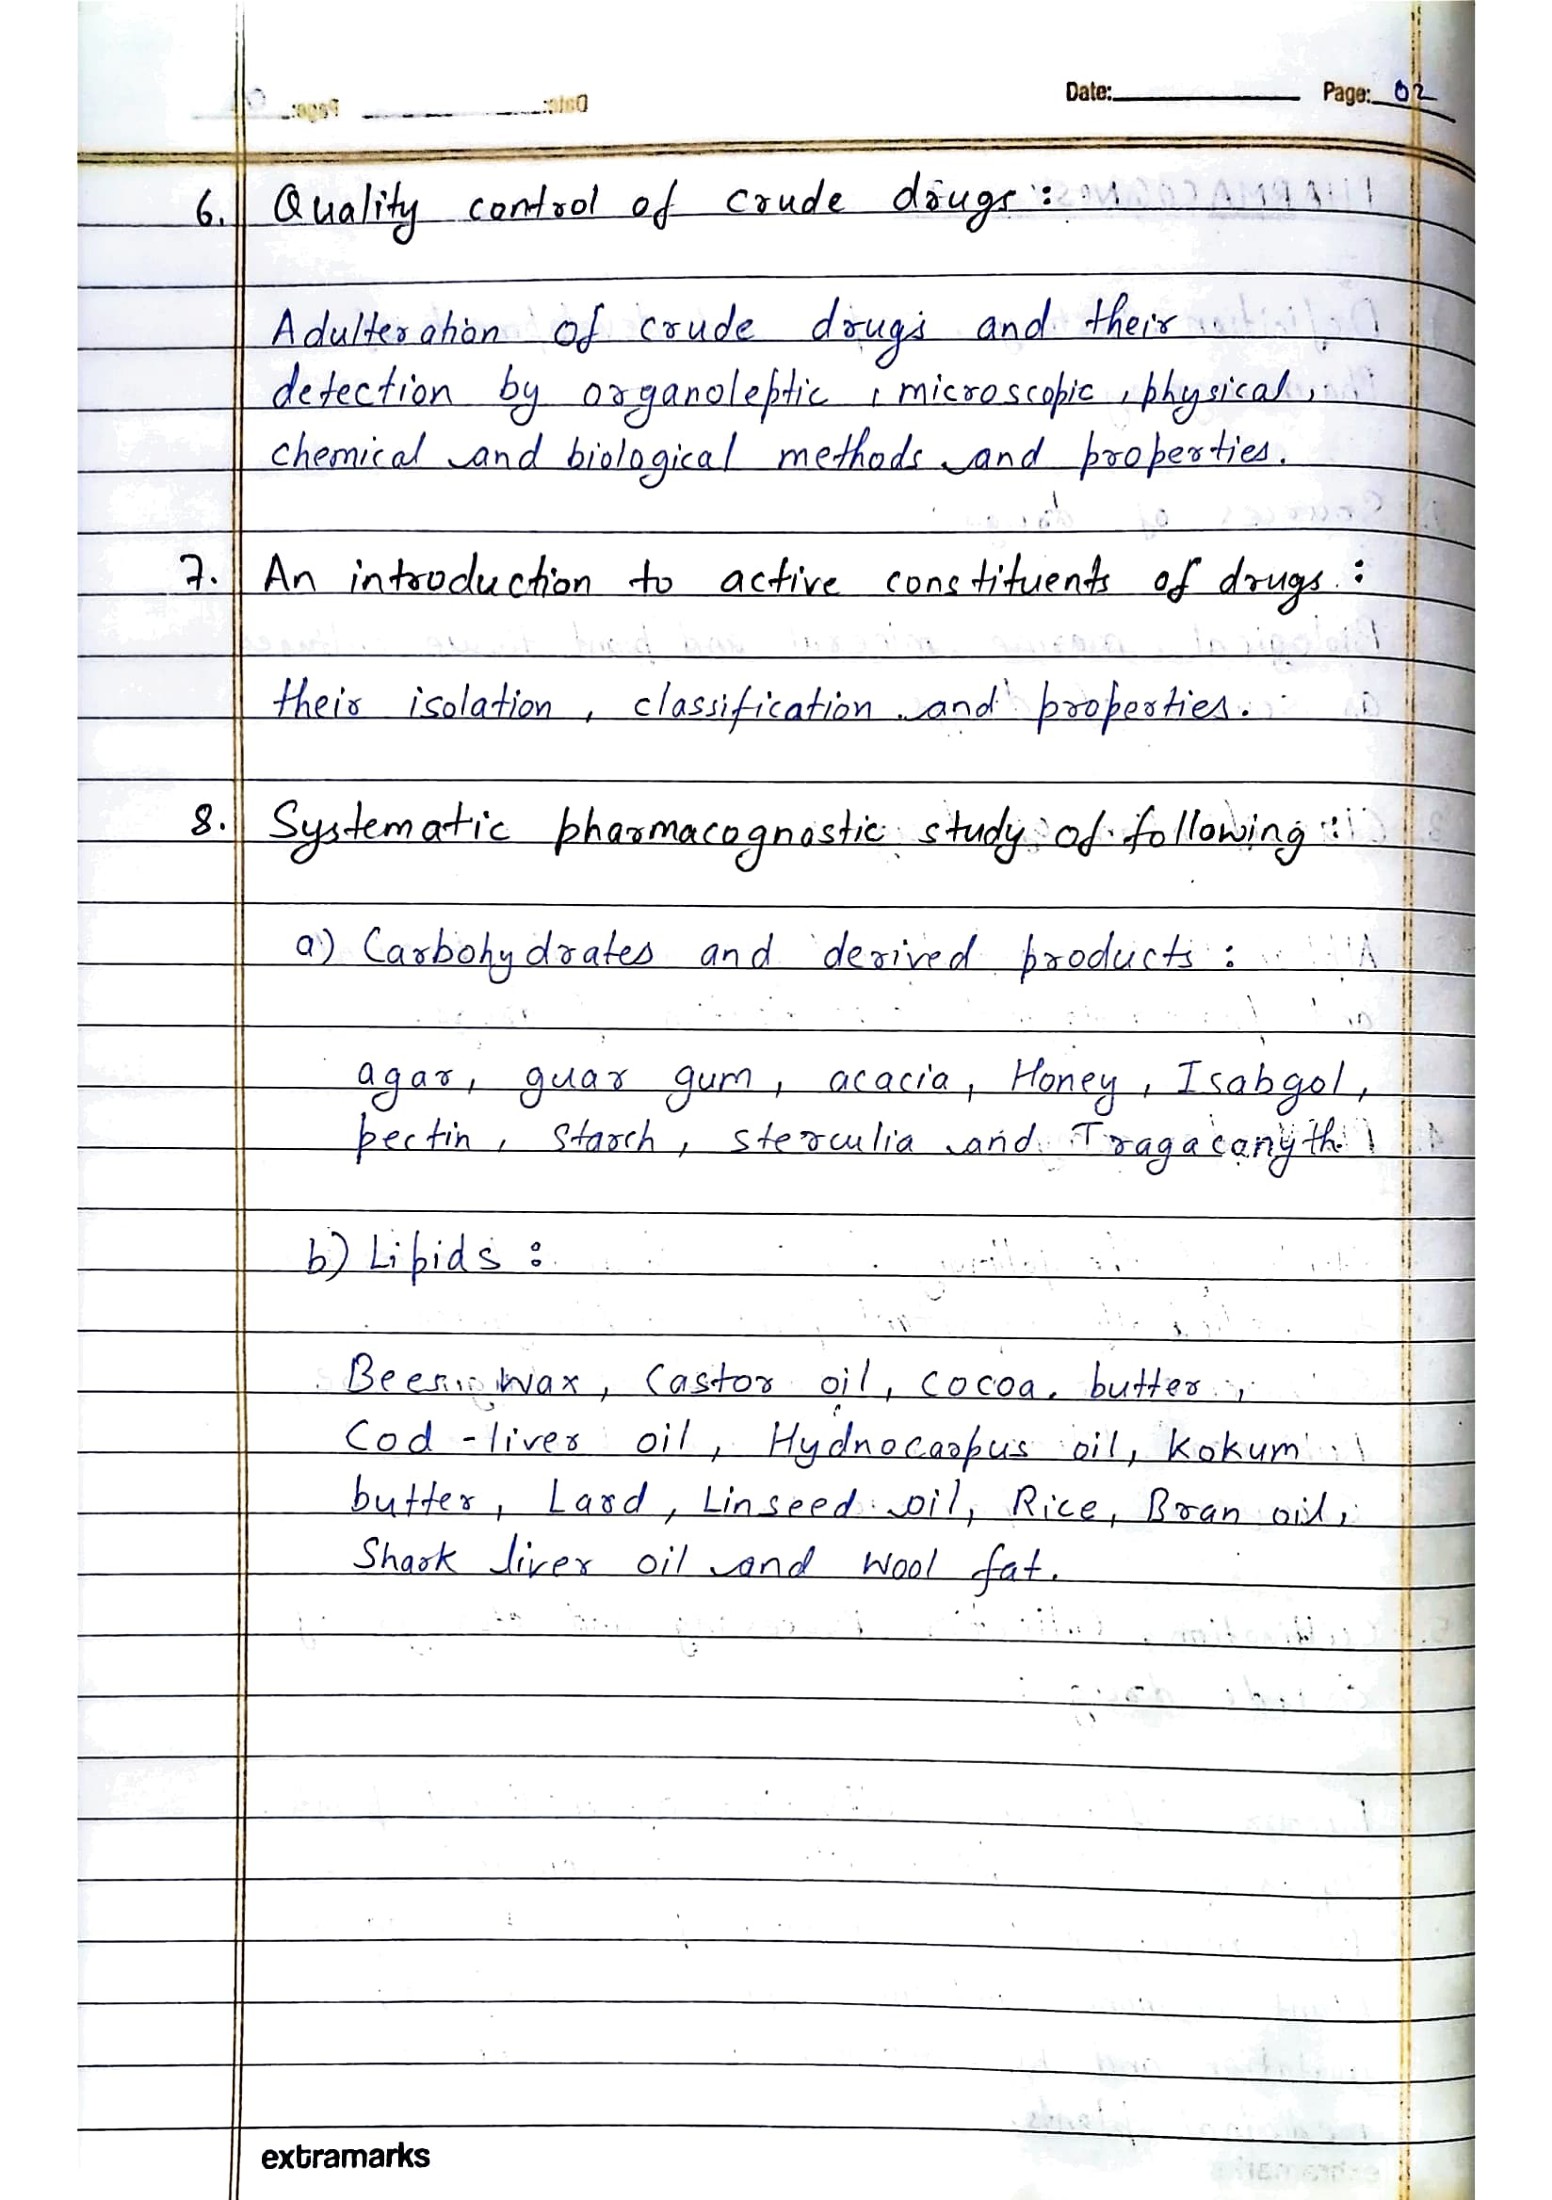 Date: Page: 02
6. Quality control of crude drugs :
Adulteration of crude drugs and their
detection by organoleptic , microscopic , physical ,
chemical and biological methods and properties.
7. An introduction to active constituents of drugs :
their isolation , classification and properties.
8. Systematic pharmacognostic study of following :
a) Carbohydrates and derived products :
agar, guar gum , acacia , Honey , Isabgol ,
pectin , Starch , sterculia and Tragacanyth.
b) Lipids :
Bees wax , Castor oil , cocoa butter ,
Cod - liver oil , Hydnocarpus oil, kokum
butter , Lard , Linseed oil, Rice, Bran oil ,
Shark liver oil and wool fat.
extramarks